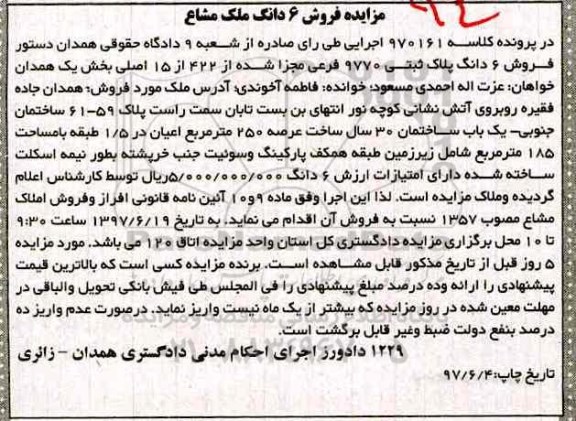 مزایده فروش ۶ دانگ ملک مشاع
در پرونده کلاسه ۹۷۰۱۶۱ اجرایی طی رای صادره از شعبه ۹ دادگاه حقوقی همدان دستور
فروش ۶ دانگ پلاک ثبتی ۹۷۷۰ فرعی مجزا شده از ۴۲۲ از ۱۵ اصلی بخش یک همدان
خواهان: عزت اله احمدی مسعود؛ خوانده: فاطمه آخوندی؛ آدرس ملک مورد فروش؛ همدان جاده
فقیره روبروی آتش نشانی کوچه نور انتهای بن بست تابان سمت راست پلاک ۵۹-۶۱ ساختمان
جنوبی- یک باب ساختمان ۳۰ سال ساخت عرصه ۲۵۰ مترمربع اعیان در ۱/۵ طبقه بامساحت
۱۸۵ مترمربع شامل زیرزمین طبقه همکف پارکینگ وسوئیت جنب خرپشته بطور نیمه اسکلت
ساخته شده دارای امتیازات ارزش ۶ دانگ ۵/۰۰۰/۰۰۰/۰۰۰ریال توسط کارشناس اعلام
گردیده وملاک مزایده است. لذا این اجرا وفق ماده ۹و۱۰ آئین نامه قانونی افراز وفروش املاک
مشاع مصوب ۱۳۵۷ نسبت به فروش آن اقدام می نماید. به تاریخ ۱۳۹۷/۶/۱۹ ساعت ۹:۳۰
تا ۱۰ محل برگزاری مزایده دادگستری کل استان واحد مزایده اتاق ۱۲۰ می باشد. مورد مزایده
۵ روز قبل از تاریخ مذکور قابل مشاهده است. برنده مزایده کسی است که بالاترین قیمت
پیشنهادی را ارائه وده درصد مبلغ پیشنهادی را فی المجلس طی فیش بانکی تحویل والباقی در
مهلت معین شده در روز مزایده که بیشتر از یک ماه نیست واریز نماید. درصورت عدم واریز ده
درصد بنفع دولت ضبط وغیر قابل برگشت است.
۱۲۲۹ دادورز اجرای احکام مدنی دادگستری همدان - زائری
تاریخ چاپ:۹۷/۶/۴